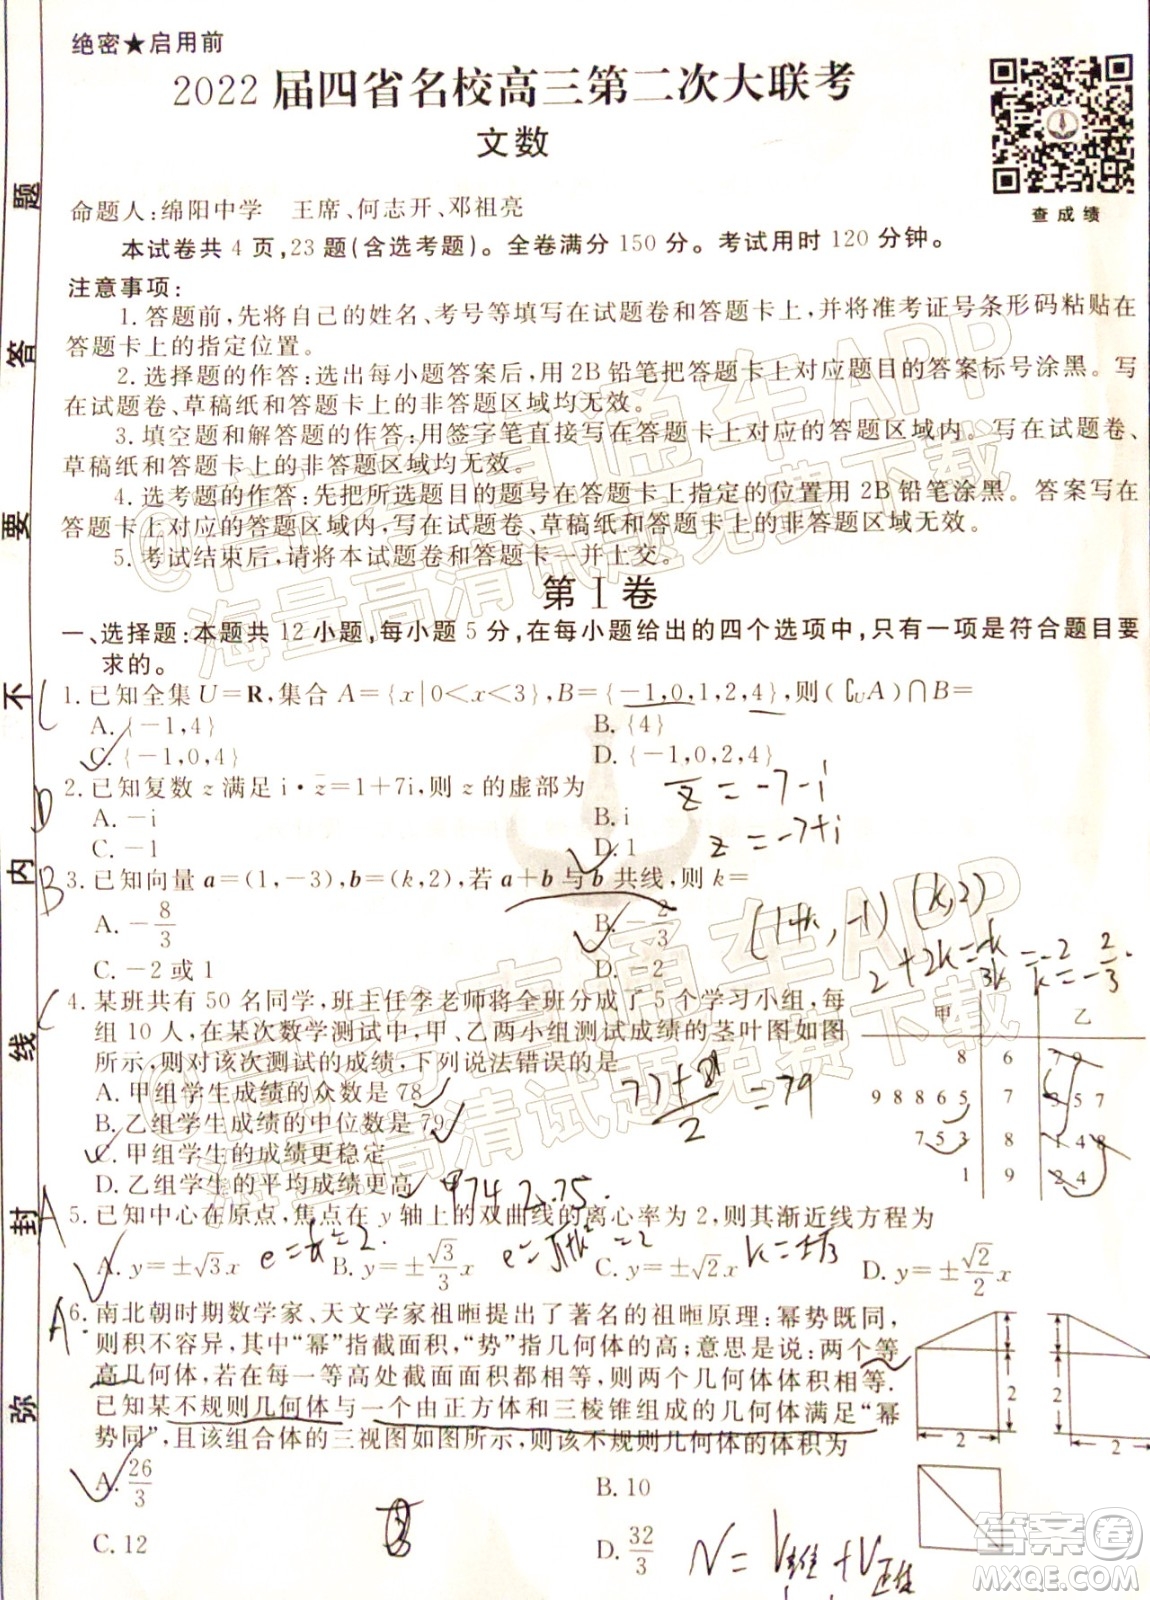 绝密★启用前
2022届四省名校高三第二次大联考
文数
查成绩
命题人:绵阳中学 王席、何志开、邓祖亮
本试卷共4页,23题(含选考题)。全卷满分150分。考试用时120分钟。
注意事项:
1.答题前,先将自己的姓名、考号等填写在试题卷和答题卡上,并将准考证号条形码粘贴在
答题卡上的指定位置。
2.选择题的作答:选出每小题答案后,用2B铅笔把答题卡上对应题目的答案标号涂黑。写
在试题卷、草稿纸和答题卡上的非答题区域均无效。
3.填空题和解答题的作答:用签字笔直接写在答题卡上对应的答题区域内。写在试题卷、
草稿纸和答题卡上的非答题区域均无效。
4.选考题的作答:先把所选题目的题号在答题卡上指定的位置用2B铅笔涂黑。答案写在
答题卡上对应的答题区域内,写在试题卷、草稿纸和答题卡上的非答题区域无效。
5.考试结束后,请将本试题卷和答题卡一并上交。
第Ⅰ卷
一、选择题:本题共12小题,每小题5分,在每小题给出的四个选项中,只有一项是符合题目要
求的。
1.已知全集U=R,集合A={x|0<x<3},B={-1,0,1,2,4},则(∁UA)∩B=
A.{-1,4} B.{4}
C.{-1,0,4} D.{-1,0,2,4}
2.已知复数z满足i·z̄=1+7i,则z的虚部为
z̄=-7-i
A.-i B.i
C.-1 D.1
z=-7+i
3.已知向量a=(1,-3),b=(k,2),若a+b与b共线,则k=
A.-8/3 B.-2/3
(1+k,-1) (k,2)
C.-2或1 D.-2
2+2k=-k
3k=-2 k=-2/3.
4.某班共有50名同学,班主任李老师将全班分成了5个学习小组,每
组10人,在某次数学测试中,甲、乙两小组测试成绩的茎叶图如图
所示,则对该次测试的成绩,下列说法错误的是
A.甲组学生成绩的众数是78
B.乙组学生成绩的中位数是79
C.甲组学生的成绩更稳定
D.乙组学生的平均成绩更高
甲 乙
8 6 7 9
9 8 8 6 5 7 5 5 7
7 5 3 8 1 4 8
1 9 2 4
=79
5.已知中心在原点,焦点在y轴上的双曲线的离心率为2,则其渐近线方程为
A.y=±√3x B.y=±√3/3x C.y=±1/2x D.y=±√2/2x
6.南北朝时期数学家、天文学家祖暅提出了著名的祖暅原理:幂势既同,
则积不容异,其中“幂”指截面积,“势”指几何体的高;意思是说:两个等
高几何体,若在每一等高处的截面面积都相等,则两个几何体体积相等.
已知某不规则几何体与一个由正方体和三棱锥组成的几何体满足“幂
势同”,且该组合体的三视图如图所示,则该不规则几何体的体积为
A.26/3 B.10
C.12 D.32/3
1
2
2
1
2
2
题
答
要
不
内
线
封
弥
@高考直通车APP
海量高清试题免费下载
@高考直通车APP
海量高清试题免费下载
答案圈
MXQE.COM